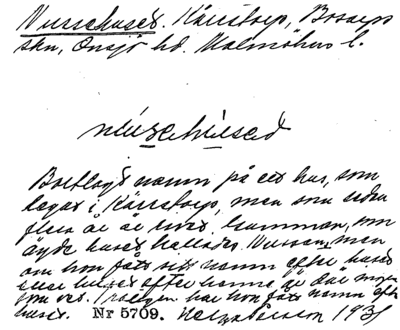 Nusschuset. Kärrstorp, Bosarps
skn, Onsjö hd. Malmöhus l.
Bortlagt namn på ett hus, som
legat i Kärrstorp, men som sedan
flera år är rivet. Kumman, som
ägde huset kallades Nussan, men
om hon fått sitt namn efter huset
eller huset efter henne är där ingen
som vet. Troligen har hon fått namn efter
huset. Nr 5709. Helge Persson 1931